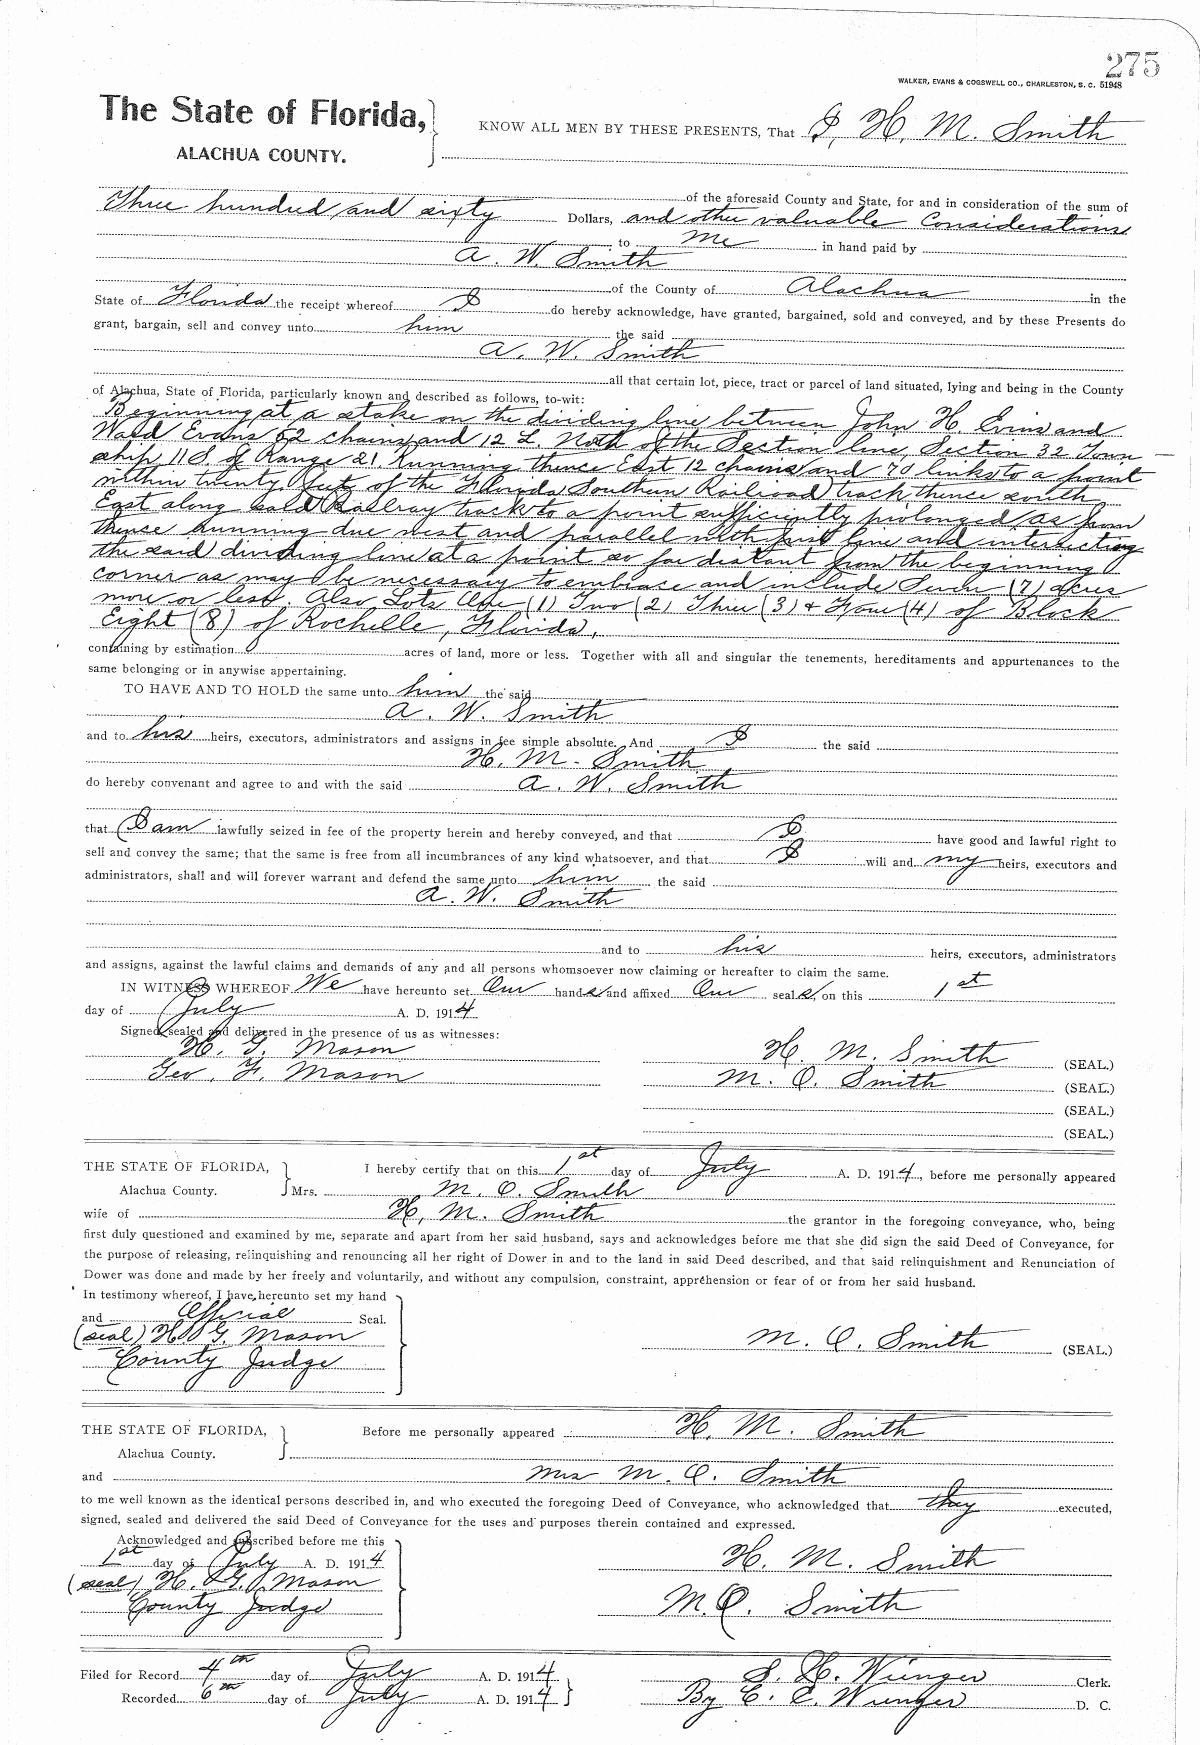 275
WALKER, EVANS & COGSWELL CO., CHARLESTON, S. C. 51948
The State of Florida,
ALACHUA COUNTY.
KNOW ALL MEN BY THESE PRESENTS, That I, H. M. Smith
of the aforesaid County and State, for and in consideration of the sum of
Three hundred and sixty Dollars, and other valuable Considerations
to me in hand paid by
A. W. Smith
of the County of Alachua in the
State of Florida the receipt whereof I do hereby acknowledge, have granted, bargained, sold and conveyed, and by these Presents do
grant, bargain, sell and convey unto him the said
A. W. Smith
all that certain lot, piece, tract or parcel of land situated, lying and being in the County
of Alachua, State of Florida, particularly known and described as follows, to-wit:
Beginning at a stake on the dividing line between John H. Evins and
Ward Evans 52 chains and 12 L. North of the Section line, Section 32 Town
ship 11 S. of Range 21 Running thence East 12 chains and 70 links to a point
within twenty feet of the Florida Southern Railroad track thence south
East along said Railray track to a point sufficiently prolonged as from
thence running due west and parallel with first line and intersecting
the said dividing line at a point so far distant from the beginning
corner as may be necessary to embrace and include Seven (7) acres
more or less. Also Lots One (1) Two (2) Three (3) & Four (4) of Block
Eight (8) of Rochelle, Florida,
containing by estimation acres of land, more or less. Together with all and singular the tenements, hereditaments and appurtenances to the
same belonging or in anywise appertaining.
TO HAVE AND TO HOLD the same unto him the said
A. W. Smith
and to his heirs, executors, administrators and assigns in fee simple absolute. And I the said
H. M. Smith
do hereby convenant and agree to and with the said A. W. Smith
that I am lawfully seized in fee of the property herein and hereby conveyed, and that I have good and lawful right to
sell and convey the same; that the same is free from all incumbrances of any kind whatsoever, and that I will and my heirs, executors and
administrators, shall and will forever warrant and defend the same unto him the said
A. W. Smith
and to his heirs, executors, administrators
and assigns, against the lawful claims and demands of any and all persons whomsoever now claiming or hereafter to claim the same.
IN WITNESS WHEREOF We have hereunto set Our hands and affixed Our seals, on this 1st
day of July A. D. 1914
Signed, sealed and delivered in the presence of us as witnesses:
H. G. Mason
Geo. F. Mason
H. M. Smith (SEAL.)
M. O. Smith (SEAL.)
(SEAL.)
(SEAL.)
THE STATE OF FLORIDA,
Alachua County.
I hereby certify that on this 1st day of July A. D. 1914, before me personally appeared
Mrs. M. O. Smith
wife of H. M. Smith the grantor in the foregoing conveyance, who, being
first duly questioned and examined by me, separate and apart from her said husband, says and acknowledges before me that she did sign the said Deed of Conveyance, for
the purpose of releasing, relinquishing and renouncing all her right of Dower in and to the land in said Deed described, and that said relinquishment and Renunciation of
Dower was done and made by her freely and voluntarily, and without any compulsion, constraint, apprehension or fear of or from her said husband.
In testimony whereof, I have hereunto set my hand
and Official Seal.
(seal) H. G. Mason
County Judge
M. O. Smith (SEAL.)
THE STATE OF FLORIDA,
Alachua County.
Before me personally appeared H. M. Smith
and Mrs M. O. Smith
to me well known as the identical persons described in, and who executed the foregoing Deed of Conveyance, who acknowledged that they executed,
signed, sealed and delivered the said Deed of Conveyance for the uses and purposes therein contained and expressed.
Acknowledged and subscribed before me this
1st day of July A. D. 1914
(seal) H. G. Mason
County Judge
H. M. Smith
M. O. Smith
Filed for Record 4th day of July A. D. 1914
Recorded 6th day of July A. D. 1914
S. H. Wienges Clerk.
By C. E. Wienges D. C.